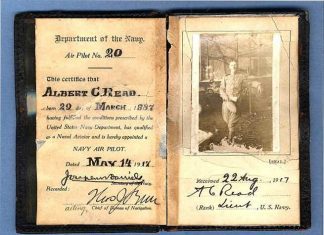 Department of the Navy.
Air Pilot No. 20
This certifies that
ALBERT C. READ.
born 29 day of MARCH 1887
having fulfilled the conditions prescribed by the
United States Navy Department, has qualified
as a Naval Aviator and is hereby appointed a
NAVY AIR PILOT.
Dated MAY 14 1917
Josephus Daniels
Secretary of
Recorded:
acting Chief of Bureau of Navigation.
[SEAL.]
Received 22 Aug, 1917
A C Read
(Rank) Lieut, U.S. Navy.